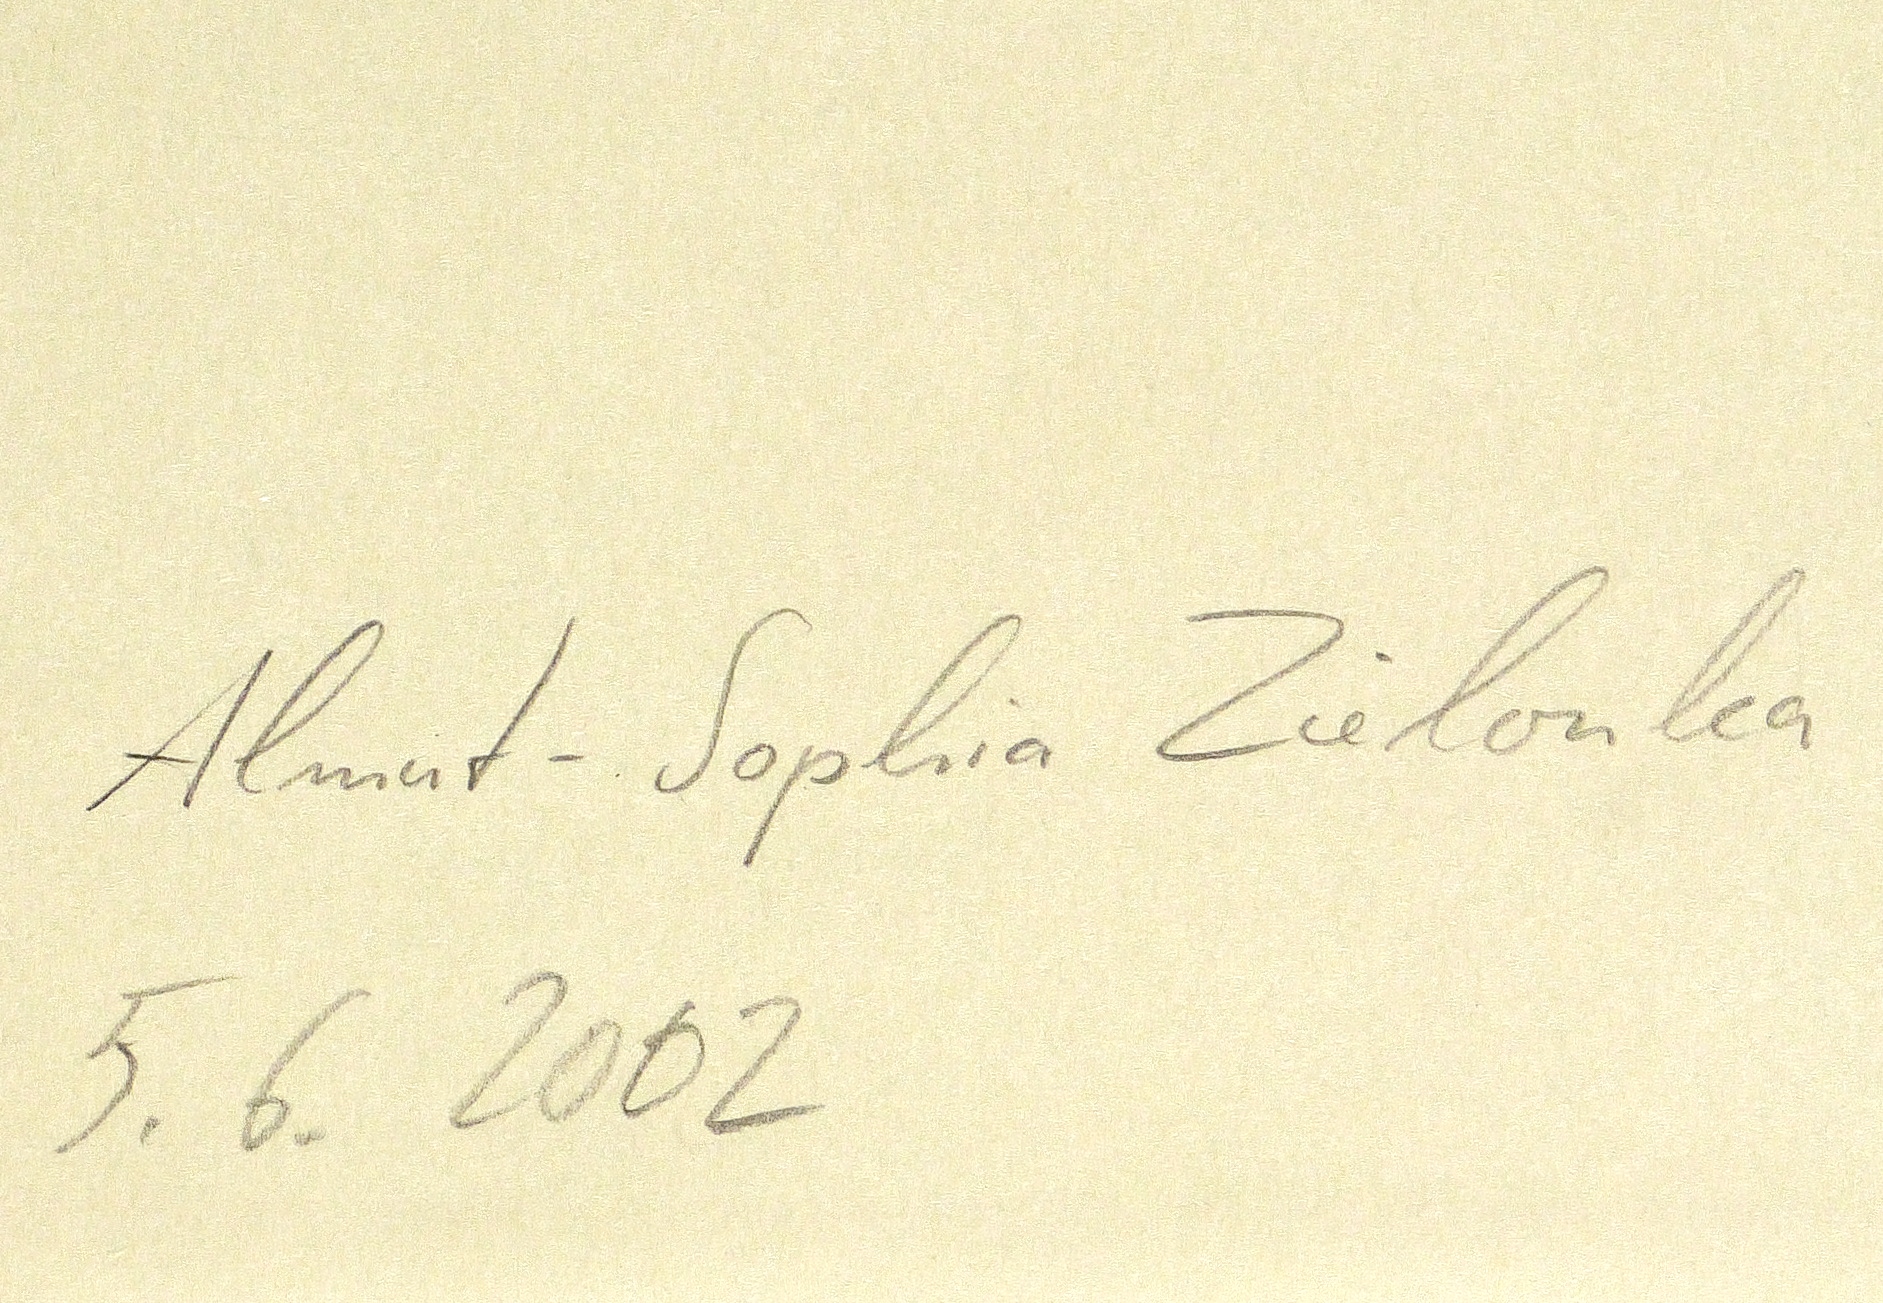 Almut-Sophia Zielonka
5. 6. 2002